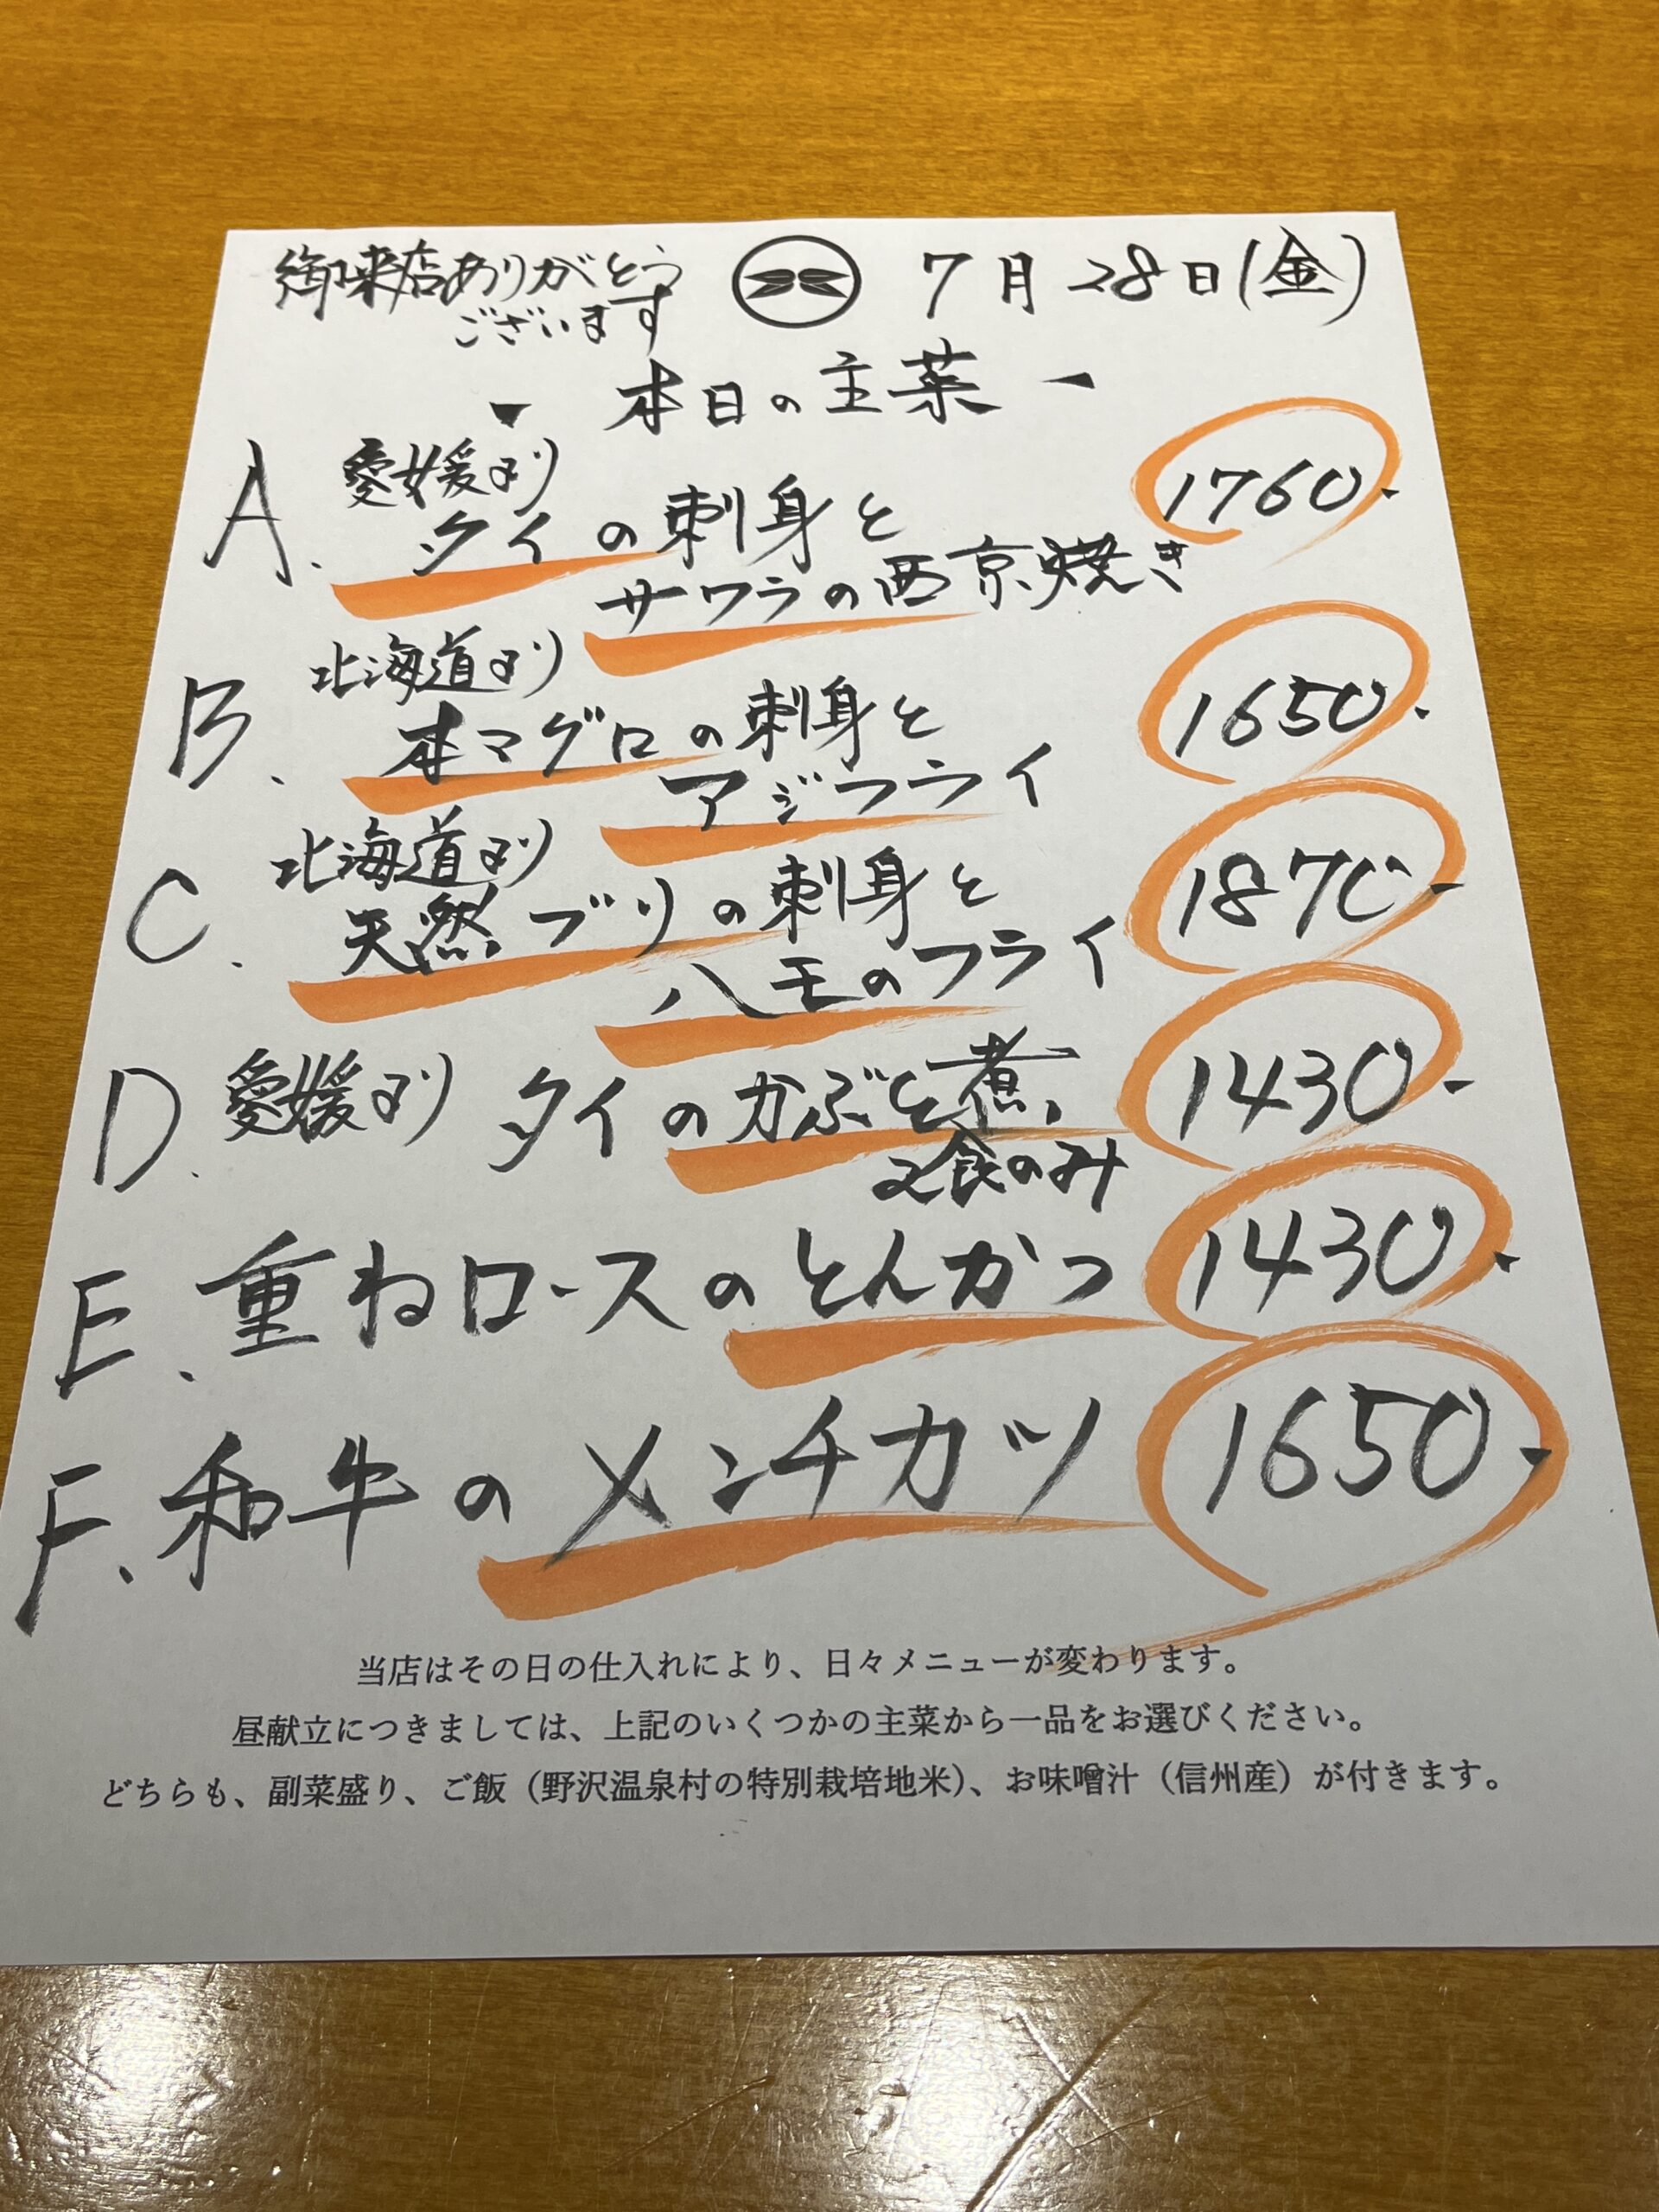 御来店ありがとう
ございます
7月28日(金)
本日の主菜
A. 愛媛より
タイの刺身と
サワラの西京焼き
1760-
B. 北海道より
本マグロの刺身と
アジフライ
1650-
C. 北海道より
天然ブリの刺身と
ハモのフライ
1870-
D. 愛媛より タイのかぶと煮
2食のみ
1430-
E. 重ねロースのとんかつ 1430-
F. 和牛のメンチカツ 1650-
当店はその日の仕入れにより、日々メニューが変わります。
昼献立につきましては、上記のいくつかの主菜から一品をお選びください。
どちらも、副菜盛り、ご飯（野沢温泉村の特別栽培地米）、お味噌汁（信州産）が付きます。